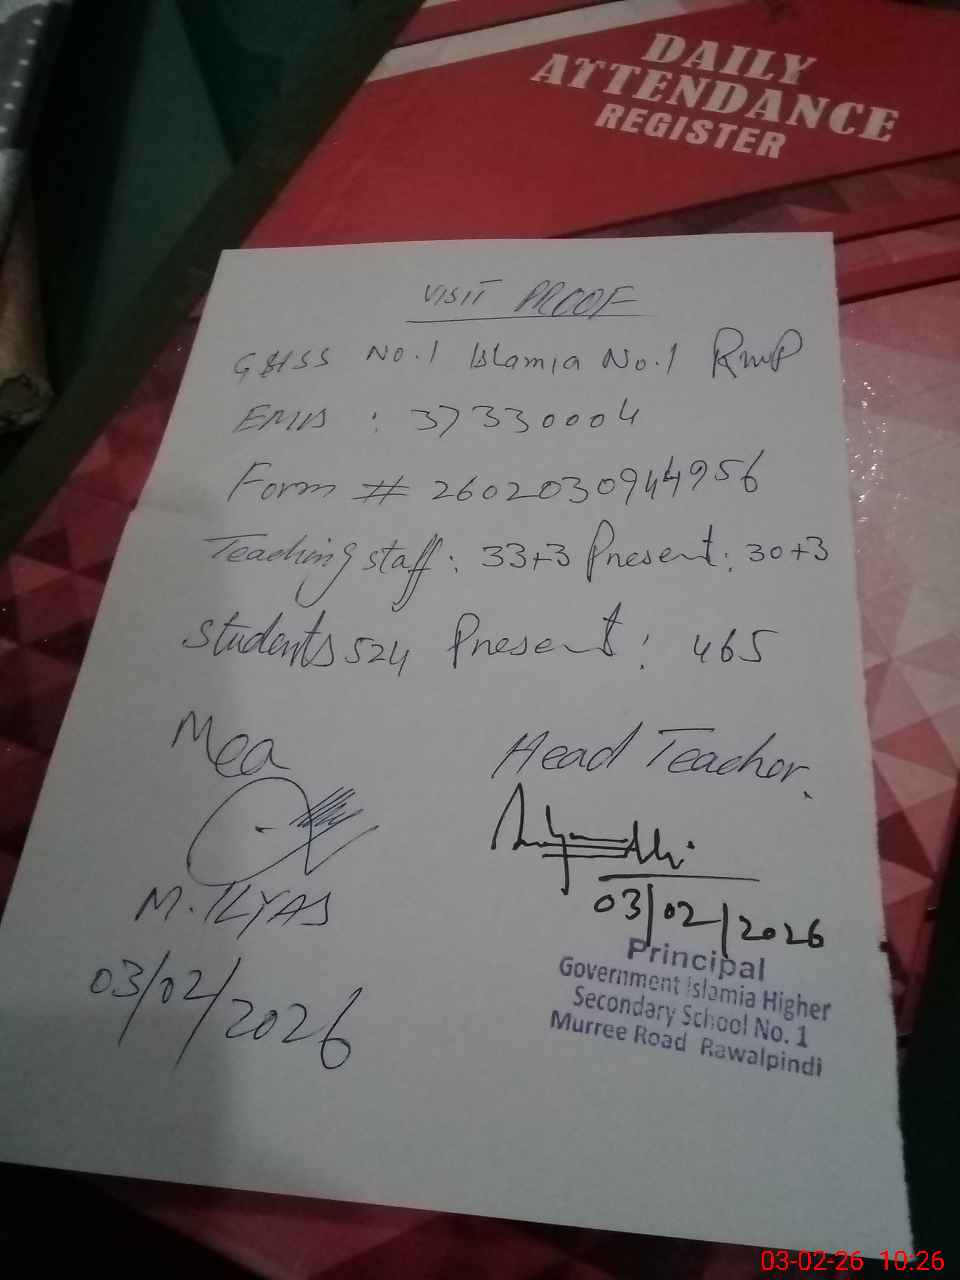 DAILY
ATTENDANCE
REGISTER
VISIT PROOF
GHSS No.1 Islamia No.1 RWP
EMIS : 37330004
Form # 2602030944956
Teaching staff: 33+3 Present: 30+3
Students 524 Present: 465
Mea
Head Teacher.
M. ILYAS
03/02/2026
03/02/2026
Principal
Government Islamia Higher
Secondary School No. 1
Murree Road Rawalpindi
03-02-26 10:26